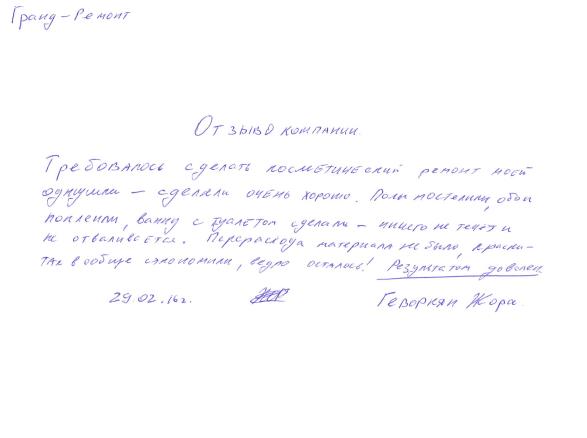 Гранд-Ремонт
Отзыв о компании.
Требовалось сделать косметический ремонт моей
однушки – сделали очень хорошо. Полы постелили, обои
поклеили, ванну с туалетом сделали – ничего не течёт и
не отваливается. Перерасхода материала не было, краски-
так вообще сэкономили, ведро осталось! Результатом доволен
29.02.16г. Геворкян Жора.